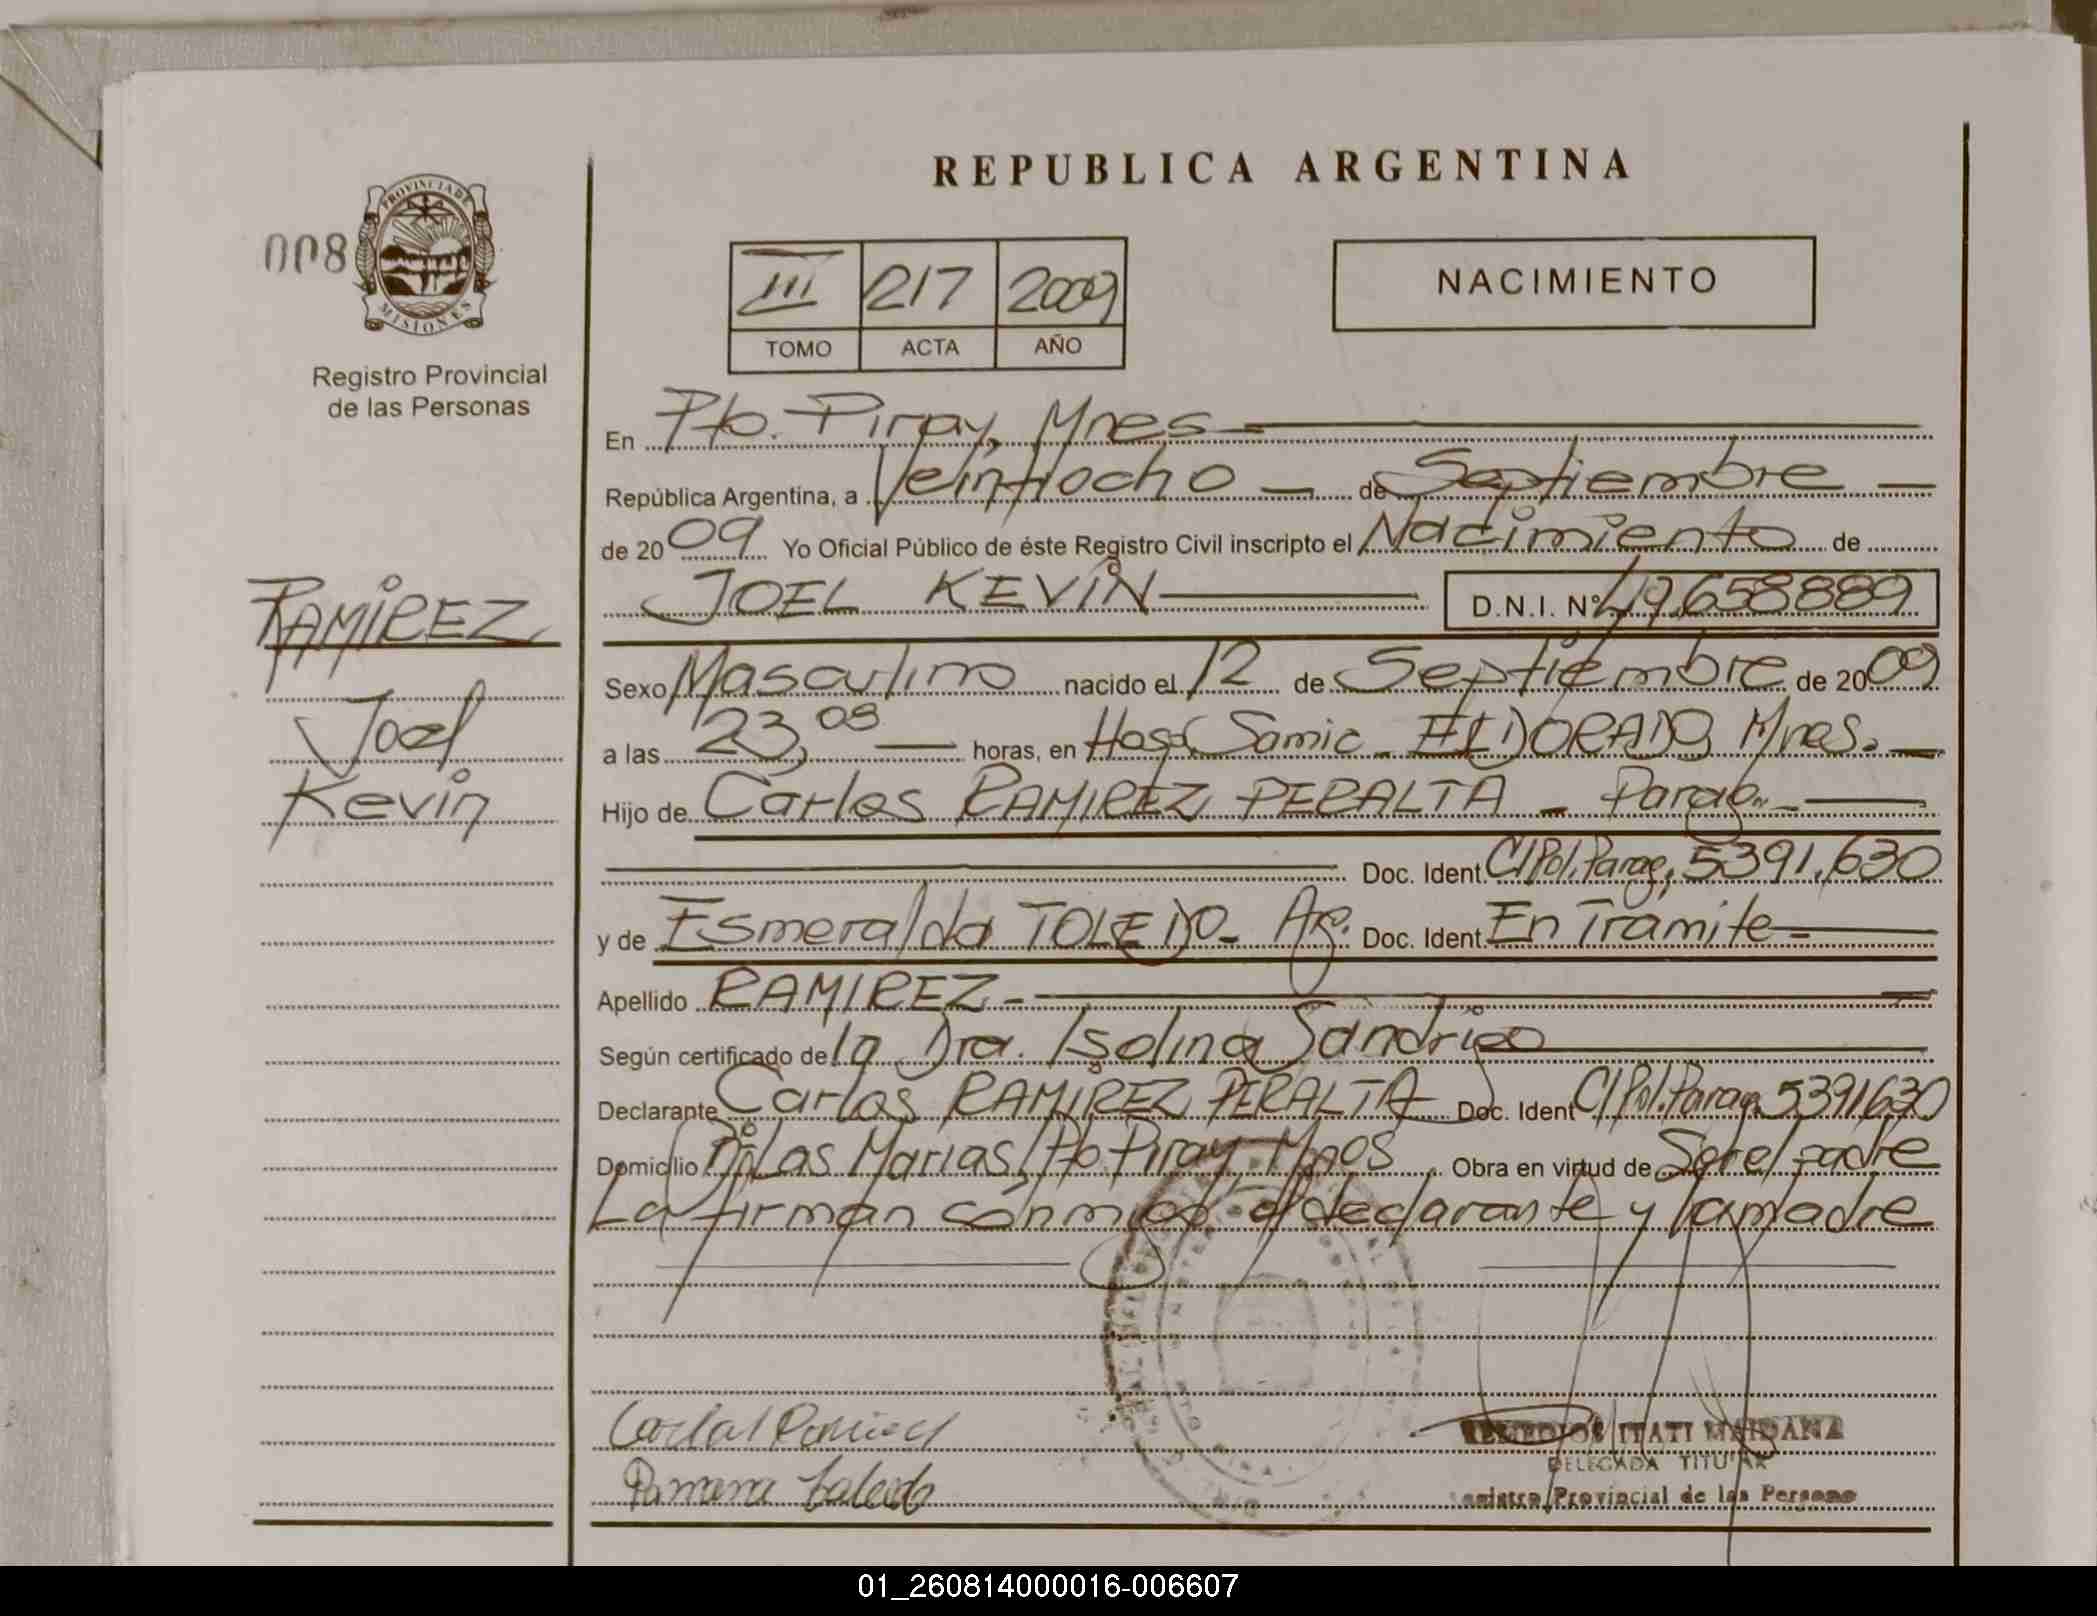 REPUBLICA ARGENTINA
PROVINCIA DE
MISIONES
008
Registro Provincial
de las Personas
III 217 2009
TOMO ACTA AÑO
NACIMIENTO
En Pto. Piray, Mnes
República Argentina, a Veintiocho de Septiembre
de 2009 Yo Oficial Público de éste Registro Civil inscripto el Nacimiento de
JOEL KEVIN D.N.I. Nº 49.658889
RAMIREZ
Joel
Kevin
Sexo Masculino nacido el 12 de Septiembre de 2009
a las 23,08 horas, en Hosp. Samic - ELDORADO, Mnes.
Hijo de Carlos RAMIREZ PERALTA - Parag.
Doc. Ident. C/Pol. Parag, 5391.630
y de Esmeralda TOLEDO - Ag. Doc. Ident. En Tramite -
Apellido RAMIREZ -
Según certificado de la Dra. Isolina
Declarante Carlos RAMIREZ PERALTA Doc. Ident C/Pol. Parag. 5391630
Domicilio Bº Las Marias, Pto Piray Mnes Obra en virtud de Ser el padre
La firman conmigo el declarante y la madre
ITATI MAIDANA
DELEGADA TITULAR
Provincial de las Persona
01_260814000016-006607